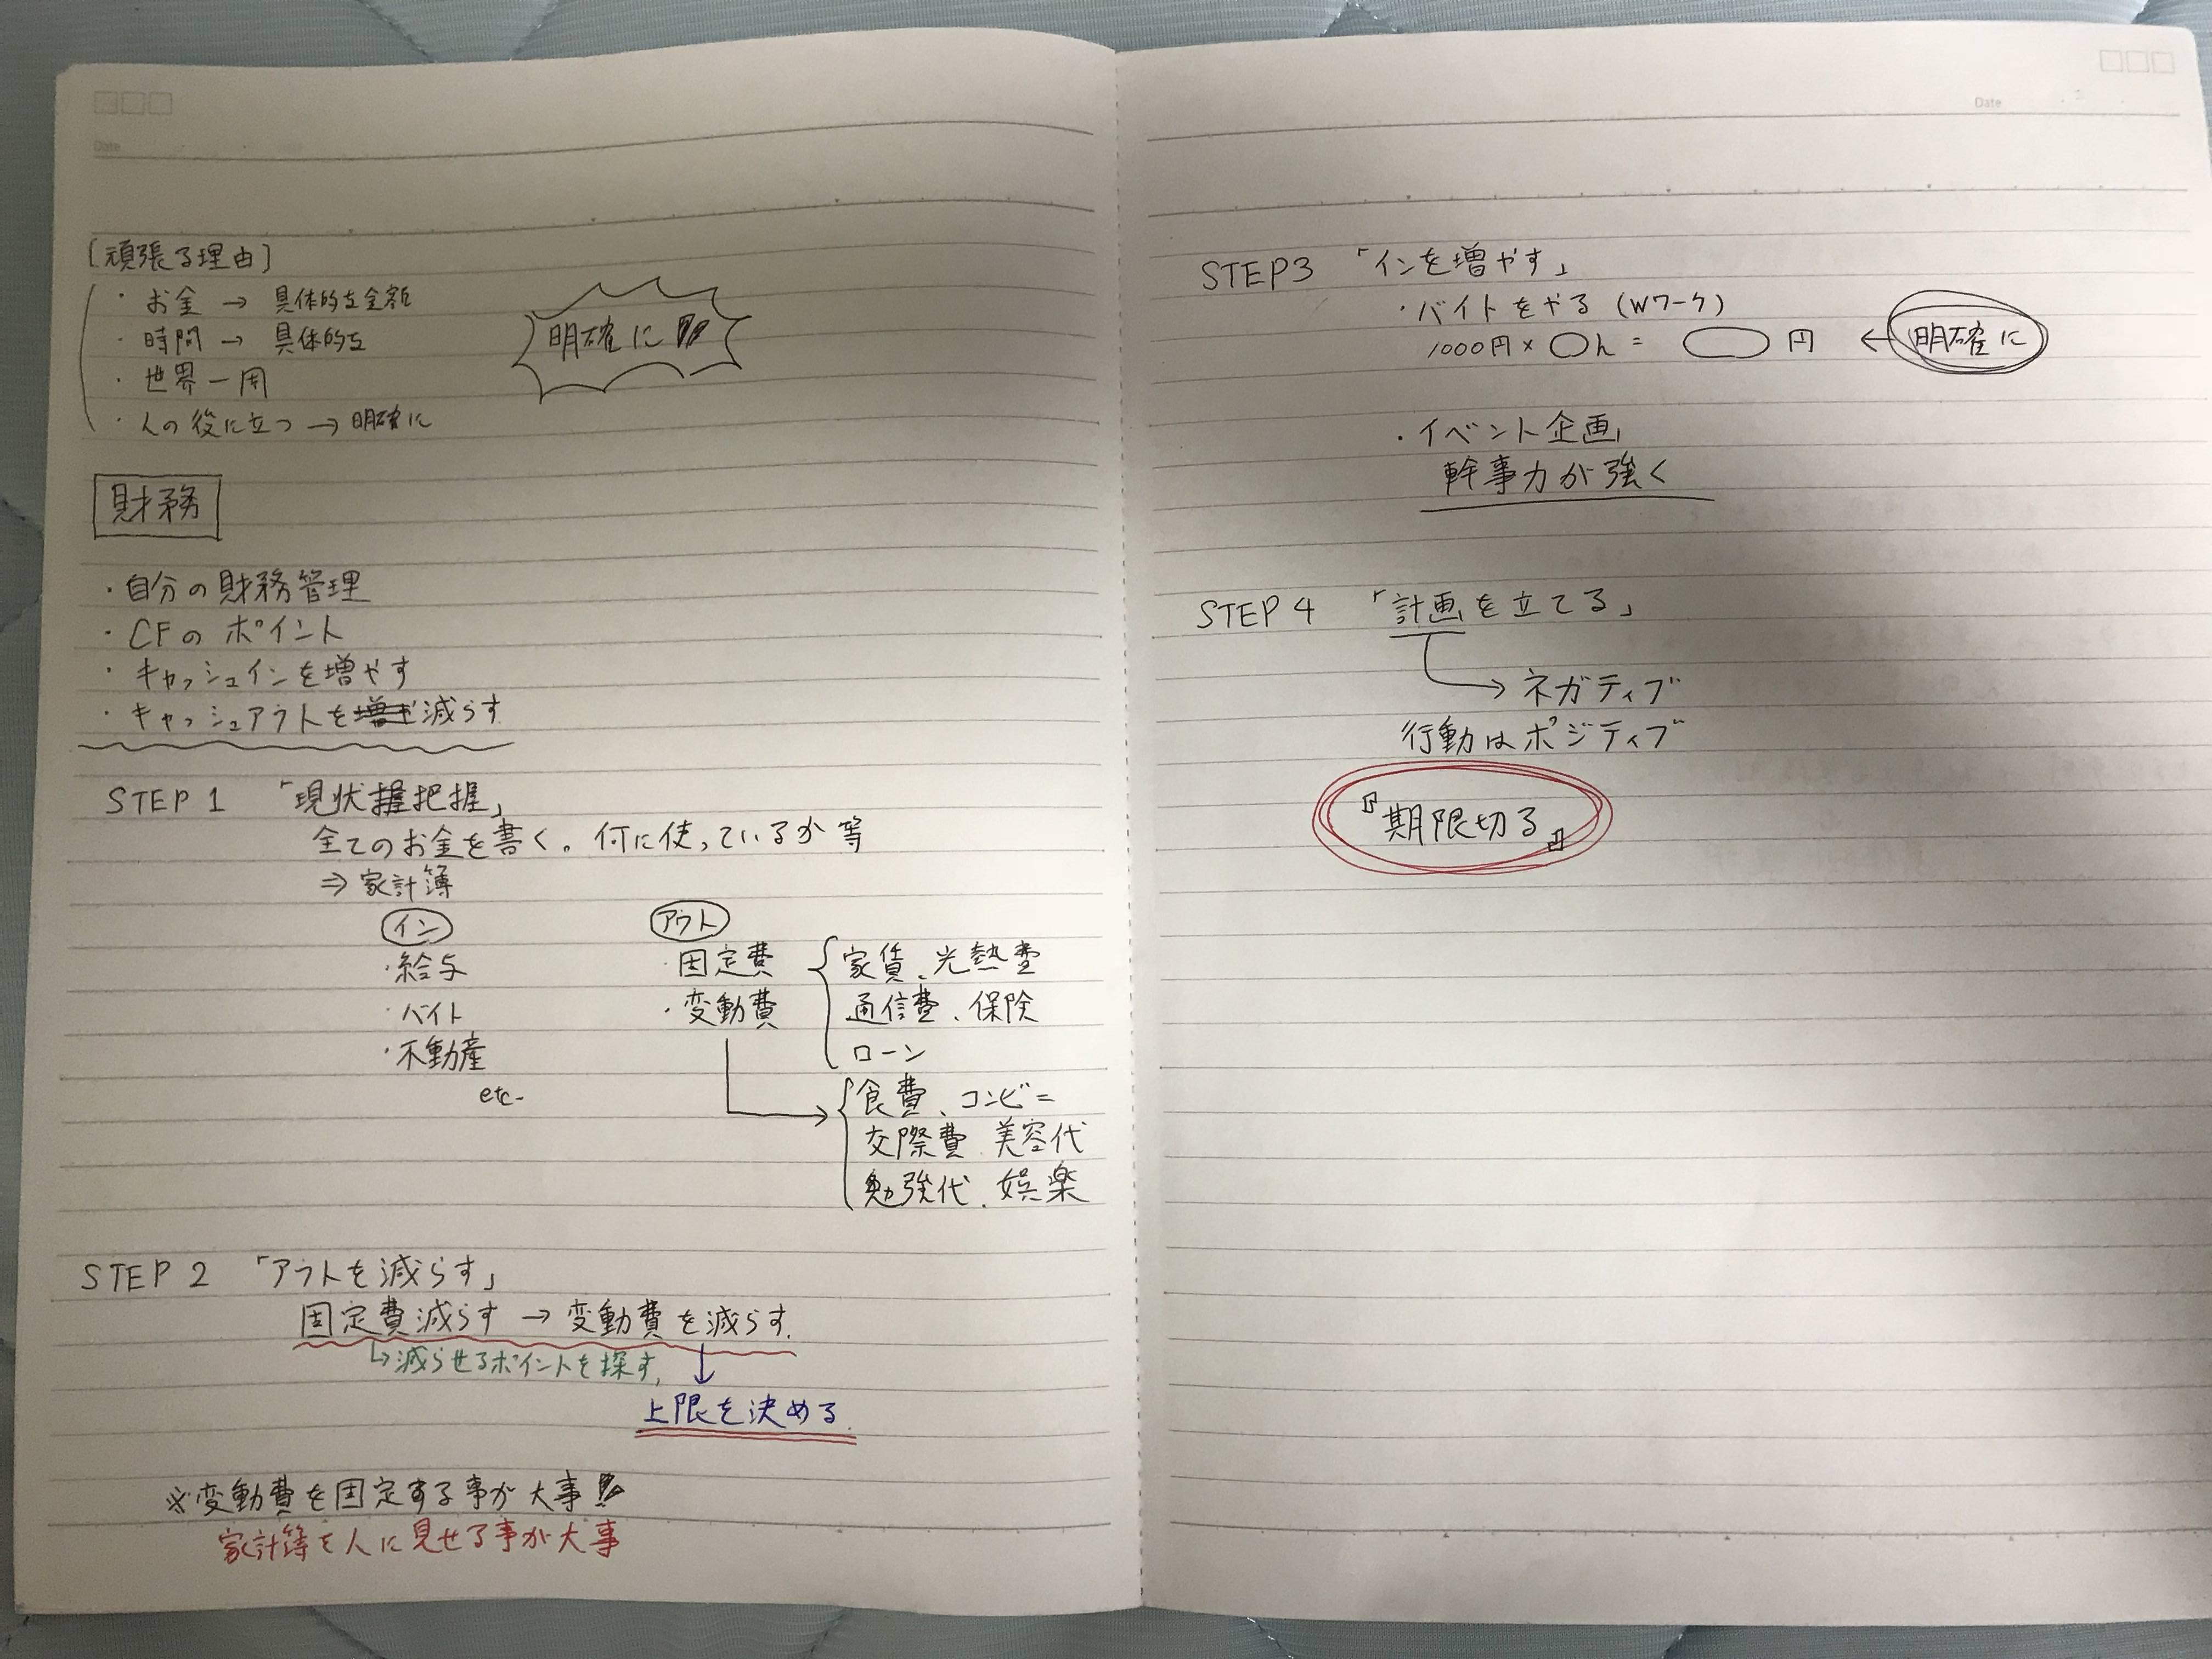 Date
[頑張る理由]
・お金 → 具体的な金額
・時間 → 具体的な
・世界一周
・人の役に立つ → 明確に
明確に!!
財務
・自分の財務管理
・CFのポイント
・キャッシュインを増やす
・キャッシュアウトを減らす
STEP 1 「現状把握」
全てのお金を書く。何に使っているか 等
⇒ 家計簿
イン
・給与
・バイト
・不動産
etc-
アウト
・固定費
・変動費
家賃、光熱費
通信費、保険
ローン
食費、コンビニ
交際費、美容代
勉強代、娯楽
STEP 2 「アウトを減らす」
固定費減らす → 変動費を減らす.
↳減らせるポイントを探す.
↓
上限を決める.
※変動費を固定する事が大事!!
家計簿を人に見せる事が大事
Date
STEP3 「インを増やす」
・バイトをやる (Wワーク)
1000円 × ○h = ○円 ← 明確に
・イベント企画
幹事力が強く
STEP 4 「計画を立てる」
→ ネガティブ
行動はポジティブ
『期限切る』